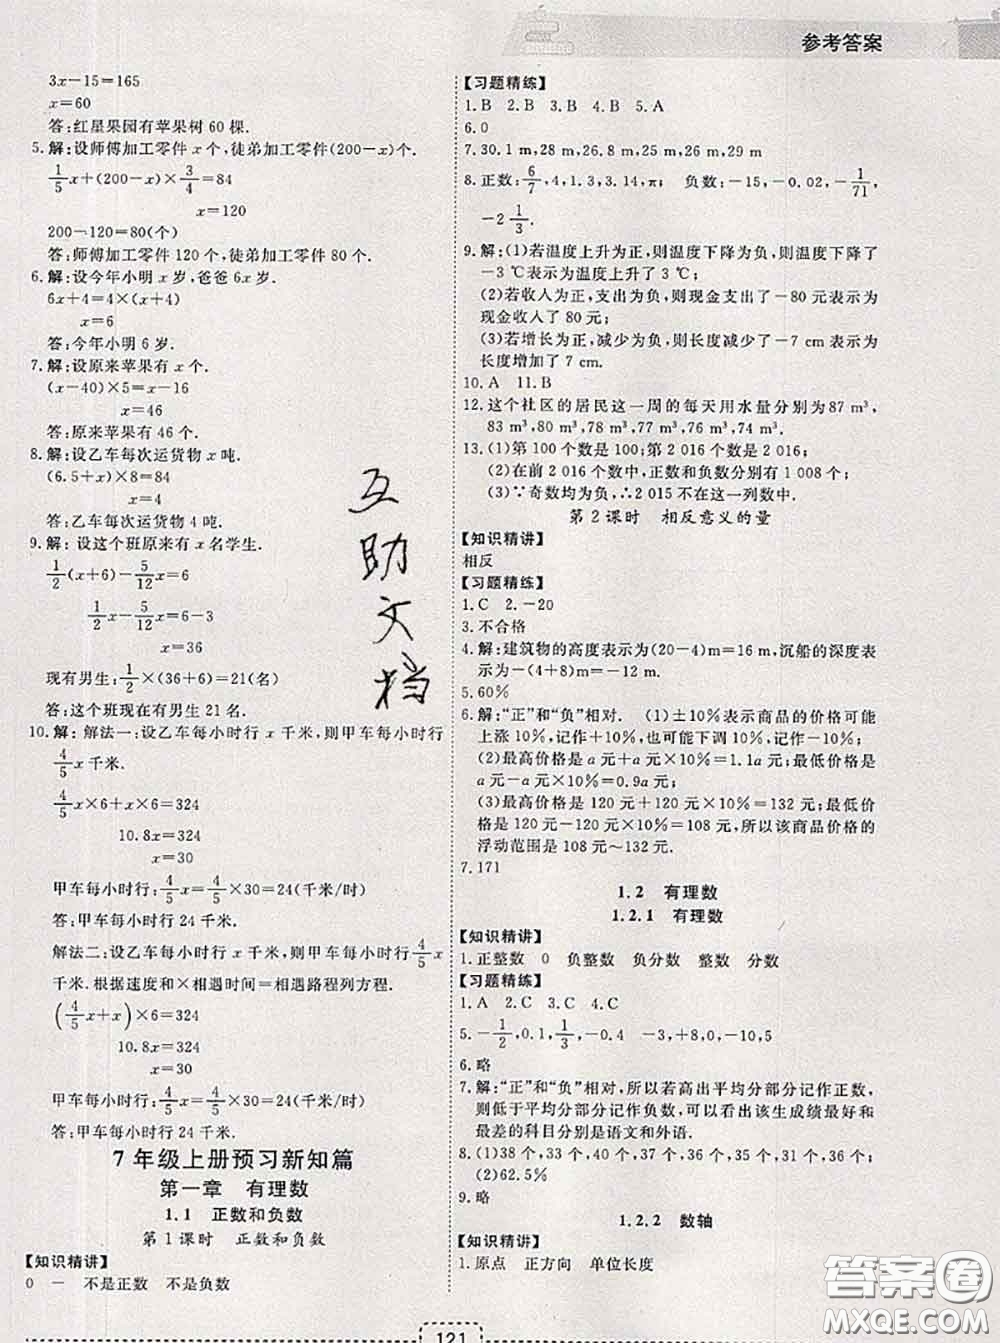 参考答案
3x－15＝165
x＝60
答:红星果园有苹果树 60 棵.
5. 解:设师傅加工零件 x 个,徒弟加工零件(200－x)个.
1/5x＋(200－x)×3/4＝84
x＝120
200－120＝80(个)
答:师傅加工零件 120 个,徒弟加工零件 80 个.
6. 解:设今年小明 x 岁,爸爸 6x 岁.
6x＋4＝4×(x＋4)
x＝6
答:今年小明 6 岁.
7. 解:设原来苹果有 x 个.
(x－40)×5＝x－16
x＝46
答:原来苹果有 46 个.
8. 解:设乙车每次运货物 x 吨.
(6.5＋x)×8＝84
x＝4
答:乙车每次运货物 4 吨.
9. 解:设这个班原来有 x 名学生.
1/2(x＋6)－5/12x＝6
1/2x－5/12x＝6－3
x＝36
现有男生:1/2×(36＋6)＝21(名)
答:这个班现在有男生 21 名.
10. 解:解法一:设乙车每小时行 x 千米,则甲车每小时行
4/5x 千米.
4/5x×6＋x×6＝324
10.8x＝324
x＝30
甲车每小时行:4/5x＝4/5×30＝24(千米/时)
答:甲车每小时行 24 千米.
解法二:设乙车每小时行 x 千米,则甲车每小时行4/5x
千米.根据速度和×相遇时间＝相遇路程列方程.
(4/5x＋x)×6＝324
10.8x＝324
x＝30
甲车每小时行:4/5x＝4/5×30＝24(千米/时)
答:甲车每小时行 24 千米.
7 年级上册预习新知篇
第一章 有理数
1.1 正数和负数
第 1 课时 正数和负数
【知识精讲】
0 － 不是正数 不是负数
【习题精练】
1. B 2. B 3. B 4. B 5. A
6. 0
7. 30.1 m,28 m,26.8 m,25 m,26 m,29 m
8. 正数:6/7,4,1.3,3.14,π; 负数:－15,－0.02,－1/71,
－2 1/3.
9. 解:(1)若温度上升为正,则温度下降为负,则温度下降了
－3 ℃表示为温度上升了 3 ℃;
(2)若收入为正,支出为负,则现金支出了－80 元表示为
现金收入了 80 元;
(3)若增长为正,减少为负,则长度减少了－7 cm 表示为
长度增加了 7 cm.
10. A 11. B
12. 这个社区的居民这一周的每天用水量分别为 87 m³,
83 m³,80 m³,78 m³,77 m³,76 m³,74 m³.
13. (1)第 100 个数是 100;第 2 016 个数是 2 016;
(2)在前 2 016 个数中,正数和负数分别有 1 008 个;
(3)∵奇数均为负,∴2 015 不在这一列数中.
第 2 课时 相反意义的量
【知识精讲】
相反
【习题精练】
1. C 2. －20
3. 不合格
4. 解:建筑物的高度表示为(20－4)m＝16 m,沉船的深度表
示为－(4＋8)m＝－12 m.
5. 60%
6. 解:“正”和“负”相对. (1)±10%表示商品的价格可能
上涨 10%,记作＋10%;也可能下调 10%,记作－10%;
(2)最高价格是 a 元＋a 元×10%＝1.1a 元;最低价格是
a 元－a 元×10%＝0.9a 元;
(3)最高价格是 120 元＋120 元×10%＝132 元;最低价
格是 120 元－120 元×10%＝108 元,所以该商品价格的
浮动范围是 108 元～132 元.
7. 171
1.2 有理数
1.2.1 有理数
【知识精讲】
1. 正整数 0 负整数 负分数 整数 分数
【习题精练】
1. A 2. C 3. C 4. C
5. －1/2,0.1,1/3,－0.4 －3,＋8,0,－10,5
6. 略
7. 解:“正”和“负”相对,所以若高出平均分部分记作正数,
则低于平均分部分记作负数,可以看出该生成绩最好和
最差的科目分别是语文和外语.
8. (1)38 个,35 个,31 个,40 个,29 个,34 个,36 个,41 个;
(2)62.5%
9. 略
1.2.2 数轴
【知识精讲】
1. 原点 正方向 单位长度
互
助
文
档
121
答案圈
MXQE.COM